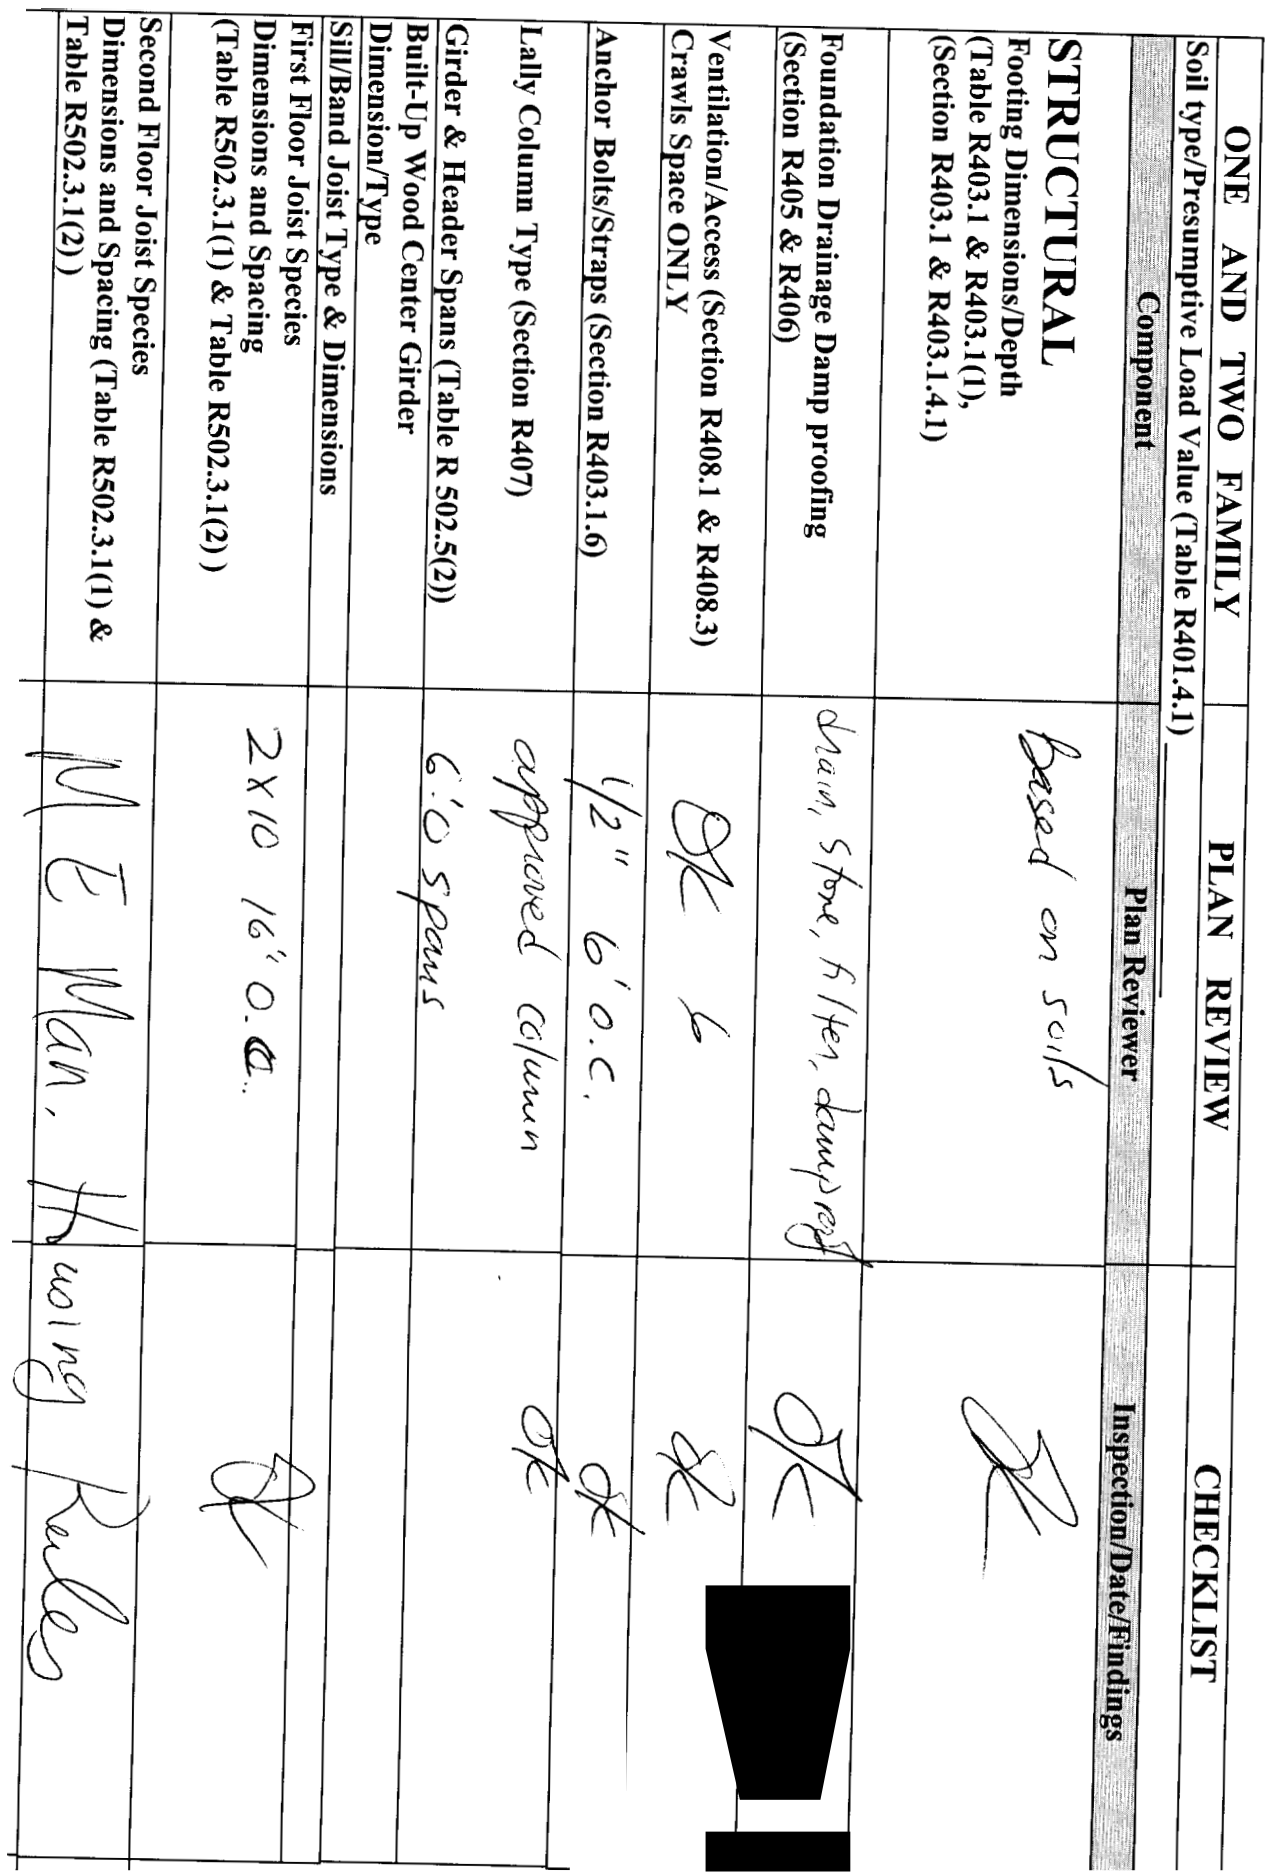 ONE AND TWO FAMILY PLAN REVIEW CHECKLIST
Soil type/Presumptive Load Value (Table R401.4.1)
Component Plan Reviewer Inspection/Date/Findings
STRUCTURAL
Footing Dimensions/Depth
(Table R403.1 & R403.1(1),
(Section R403.1 & R403.1.4.1)
Based on soils
OK
Foundation Drainage Damp proofing
(Section R405 & R406)
drain, Stone, filter,
OK
Ventilation/Access (Section R408.1 & R408.3)
Crawls Space ONLY
OK 6
OK
Anchor Bolts/Straps (Section R403.1.6)
1/2" 6'O.C.
OK
Lally Column Type (Section R407)
approved column
OK
Girder & Header Spans (Table R 502.5(2))
6'0 spans
Built-Up Wood Center Girder
Dimension/Type
Sill/Band Joist Type & Dimensions
First Floor Joist Species
Dimensions and Spacing
(Table R502.3.1(1) & Table R502.3.1(2) )
2x10 16" O.C.
OK
Second Floor Joist Species
Dimensions and Spacing (Table R502.3.1(1) &
Table R502.3.1(2) )
M E Man. Housing Rules